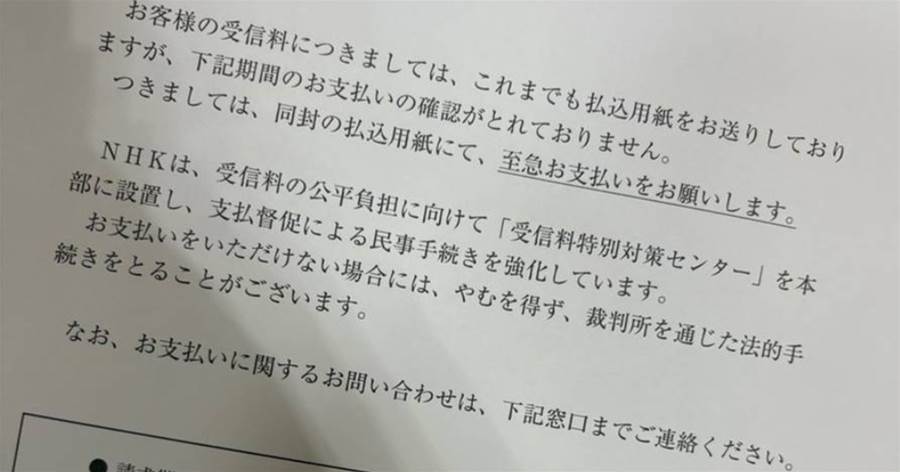 お客様の受信料につきましては、これまでも払込用紙をお送りしており
ますが、下記期間のお支払いの確認がとれておりません。
つきましては、同封の払込用紙にて、至急お支払いをお願いします。
ＮＨＫは、受信料の公平負担に向けて「受信料特別対策センター」を本
部に設置し、支払督促による民事手続きを強化しています。
お支払いをいただけない場合には、やむを得ず、裁判所を通じた法的手
続きをとることがございます。
なお、お支払いに関するお問い合わせは、下記窓口までご連絡ください。